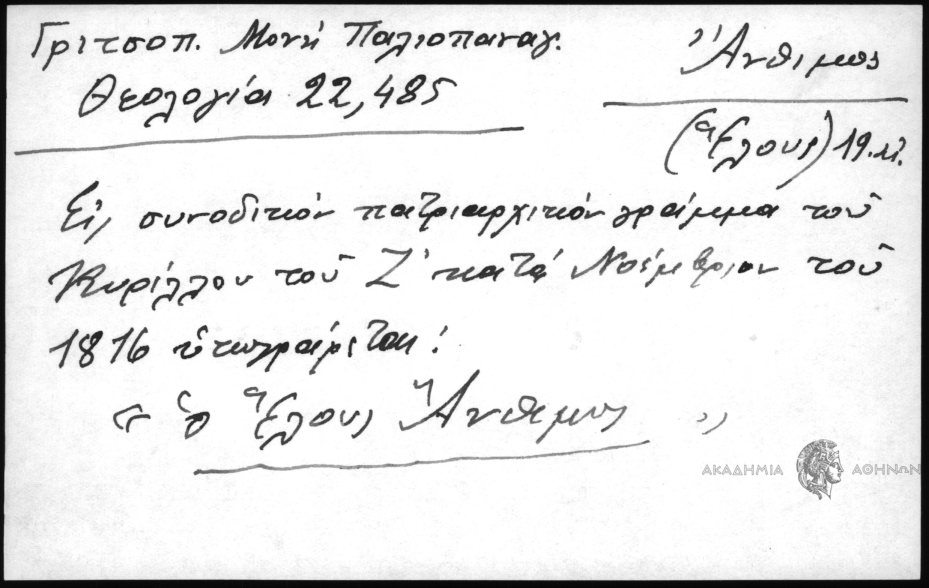 Γριτσοπ. Μονή Παλιοπαναγ.
Θεολογία 22,485
Ἄνθιμος
(Ἕλους) 19.αἰ.
Εἰς συνοδικόν πατριαρχικόν γράμμα τοῦ
Κυρίλλου τοῦ Ζ' κατά Νοέμβριον τοῦ
1816 ὑπογράφεται:
« ὁ Ἕλους Ἄνθιμος »
ΑΚΑΔΗΜΙΑ ΑΘΗΝΩΝ